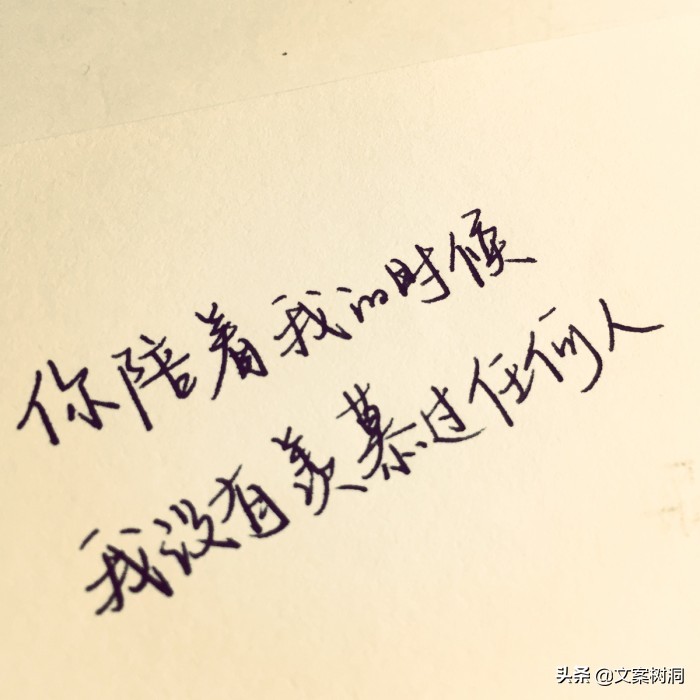 你陪着我的时候
我没有羡慕过任何人
头条 @文案树洞